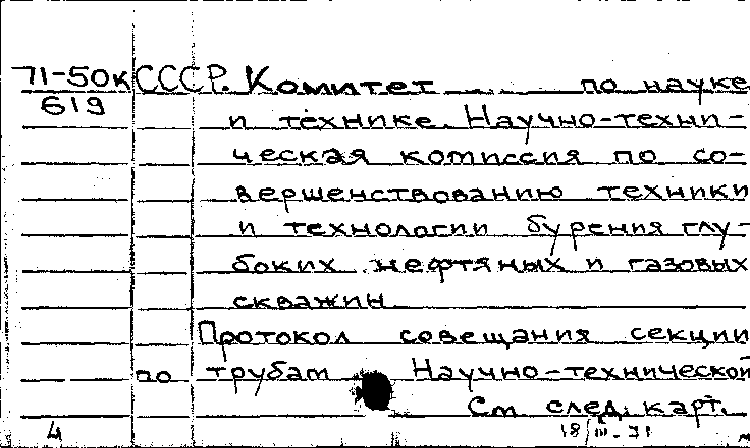 71-50к СССР. Комитет ..... по науке
619
и технике. Научно-техни-
ческая комиссия по со-
вершенствованию техники
и технологии бурения глу-
боких нефтяных и газовых
скважин
Протокол совещания секции
по трубам Научно-технической
См след. карт.
4 18/III-71